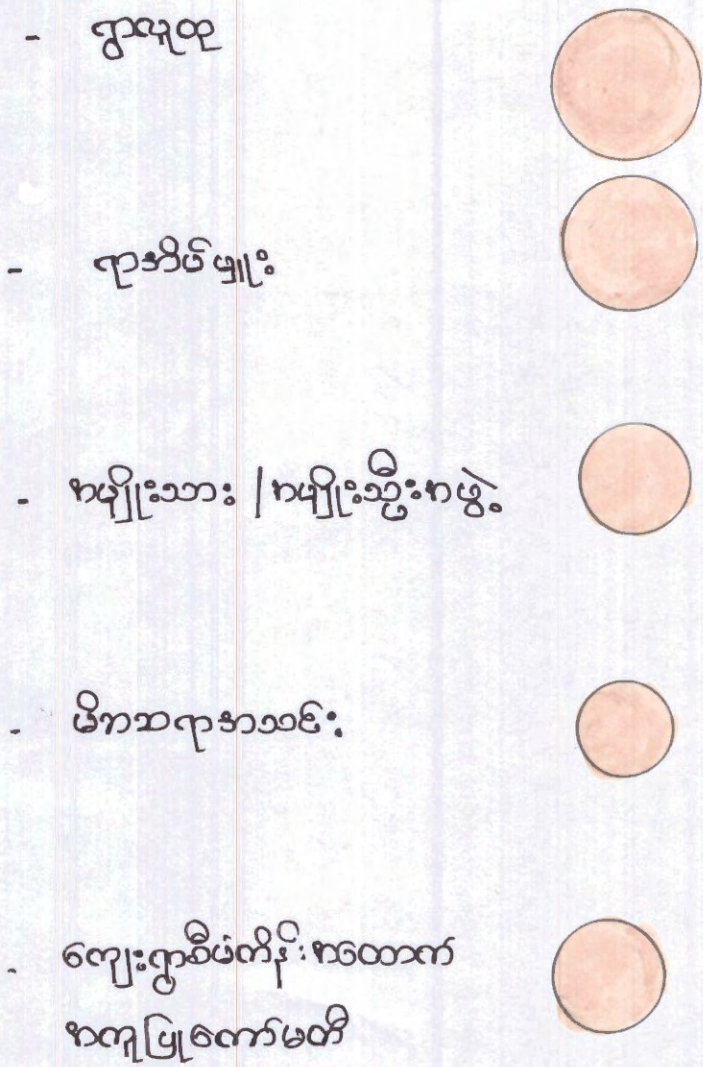 - ရွာလူထု
- ရာအိမ်မှူး
- အမျိုးသား / အမျိုးသ္မီးအဖွဲ့
- မိဘဆရာအသင်း
- ကျေးရွာစီမံကိန်းအထောက်
အကူပြုကော်မတီ